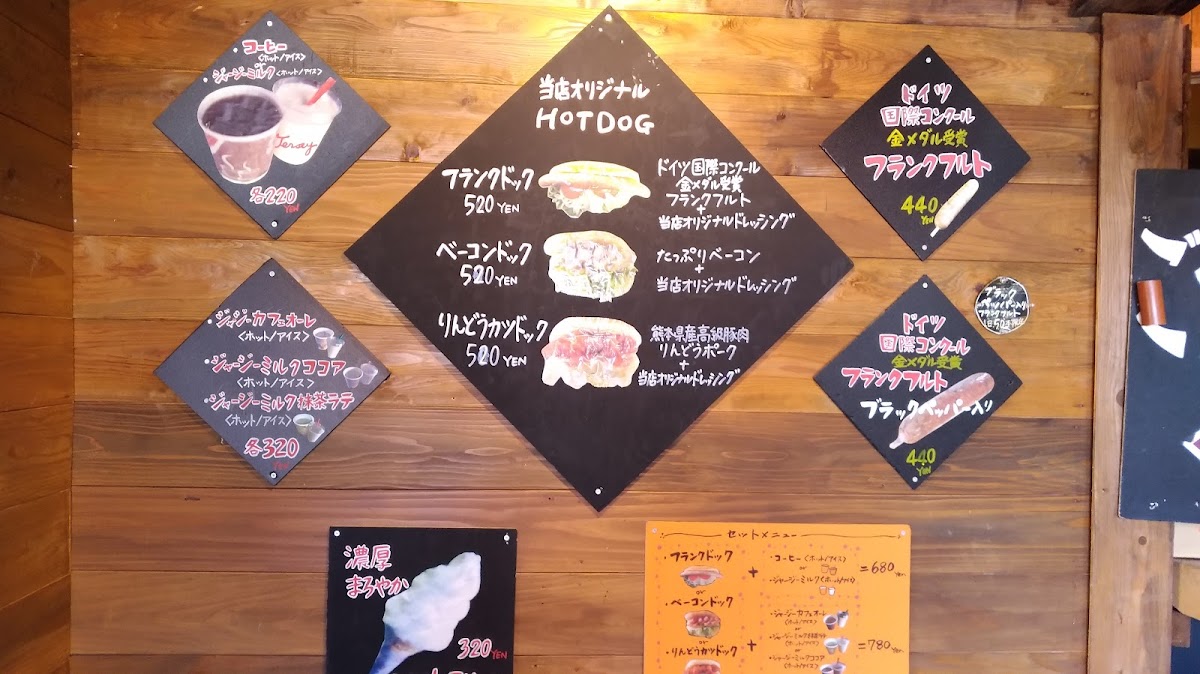 コーヒー
<ホット/アイス>
or
ジャージーミルク<ホット/アイス>
Jersey
各220
YEN
・ジャージーカフェオーレ
<ホット/アイス>
・ジャージーミルクココア
<ホット/アイス>
・ジャージーミルク抹茶ラテ
<ホット/アイス>
各320
YEN
当店オリジナル
HOTDOG
フランクドック
520 YEN
ドイツ国際コンクール
金メダル受賞
フランクフルト
+
当店オリジナルドレッシング
ベーコンドック
520 YEN
たっぷりベーコン
+
当店オリジナルドレッシング
りんどうカツドック
520 YEN
熊本県産高級豚肉
りんどうポーク
+
当店オリジナルドレッシング
ドイツ
国際コンクール
金メダル受賞
フランクフルト
440
YEN
ブラック
ペッパー入り
フランクフルト
ドイツ
国際コンクール
金メダル受賞
フランクフルト
ブラックペッパー入り
440
YEN
濃厚
まろやか
320 YEN
セットメニュー
・フランクドック
or
・ベーコンドック
or
・りんどうカツドック
+
・コーヒー<ホット/アイス>
or
・ジャージーミルク<ホット/アイス>
=680 YEN
+
・ジャージーカフェオーレ
<ホット/アイス>
or
・ジャージーミルク抹茶ラテ
<ホット/アイス>
or
・ジャージーミルクココア
<ホット/アイス>
=780 YEN